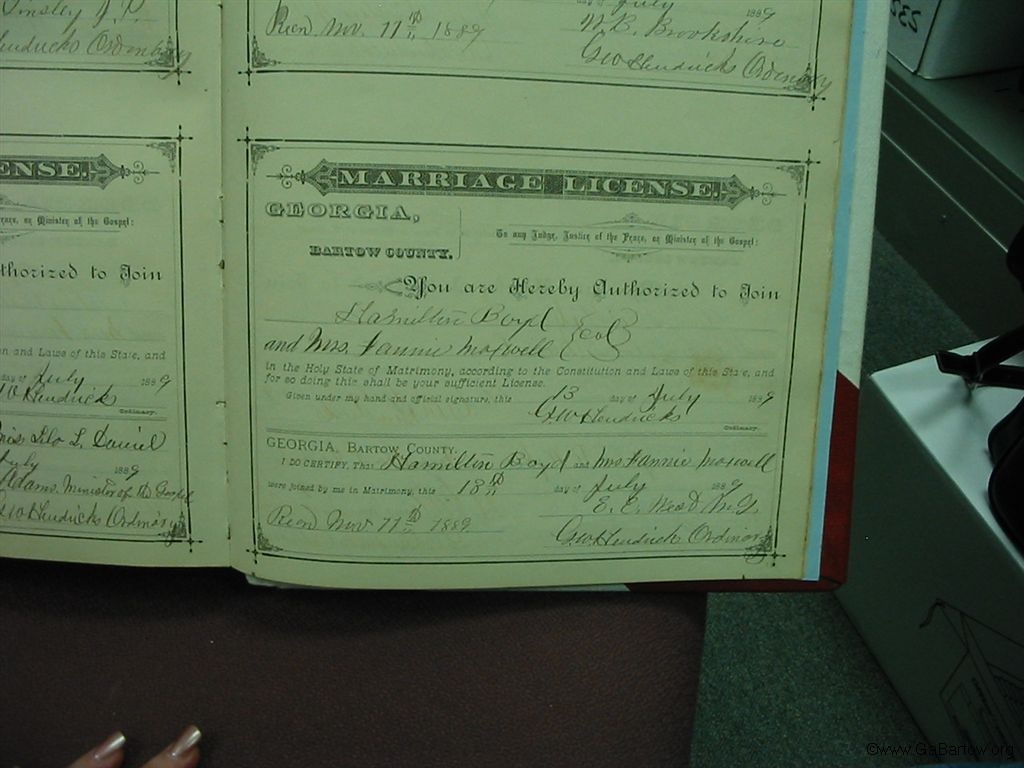 Tinsley J. P.
Hendricks Ordinary
Recd. Nov. 11th 1889
July 1889
W. R. Brookshire
Geo Hendricks Ordinary
ENSE.
Peace, or Minister of the Gospel:
thorized to Join
n and Laws of this State, and
day of July 1889
Hendricks
Ordinary.
Miss Lilo L. Daniel
July 1889
Adams. Minister of the Gospel
Hendricks Ordinary
MARRIAGE LICENSE.
GEORGIA,
BARTOW COUNTY.
To any Judge, Justice of the Peace, or Minister of the Gospel:
You are Hereby Authorized to Join
Hamilton Boyd
(Col)
and Mrs. Fannie Maxwell
in the Holy State of Matrimony, according to the Constitution and Laws of this State, and
for so doing this shall be your sufficient License.
Given under my hand and official signature, this 13 day of July 1889
G.W. Hendricks
Ordinary.
GEORGIA, BARTOW COUNTY.
I DO CERTIFY, That Hamilton Boyd and Mrs Fannie Maxwell
were joined by me in Matrimony, this 13th day of July 1889
E. E.
Recd Nov 11th 1889
G.W. Hendricks Ordinary
232
©www.GaBartow.org